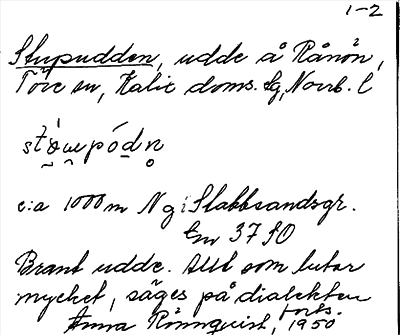 1-2
Stupudden, udde å Rånön,
Töre sn, Kalix doms. sg, Norrb. l
c:a 1000 m N g i Slabbsandsgr.
Em 37 SO
Brant udde. Allt som lutar
mycket, säges på dialekten
Anna Rönnquist, forts. 1950